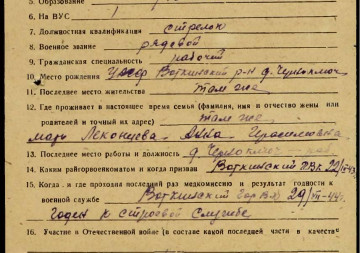 5. Образование
6. На ВУС 1
7. Должностная квалификация стрелок
8. Военное звание рядовой
9. Гражданская специальность рабочий
10. Место рождения УАССР Воткинский р-н д.
11. Последнее место жительства там же
12. Где проживает в настоящее время семья (фамилия, имя и отчество жены или
родителей и точный их адрес) там же
мать Леконцева Анна
13. Последнее место работы и должность д.
14. Каким райгорвоенкоматом и когда призван Воткинский
15. Когда и где проходил последний раз медкомиссию и результат годности к
военной службе Воткинский 29/III-44
годен к строевой службе
16. Участие в Отечественной войне (в составе какой последней части в качестве